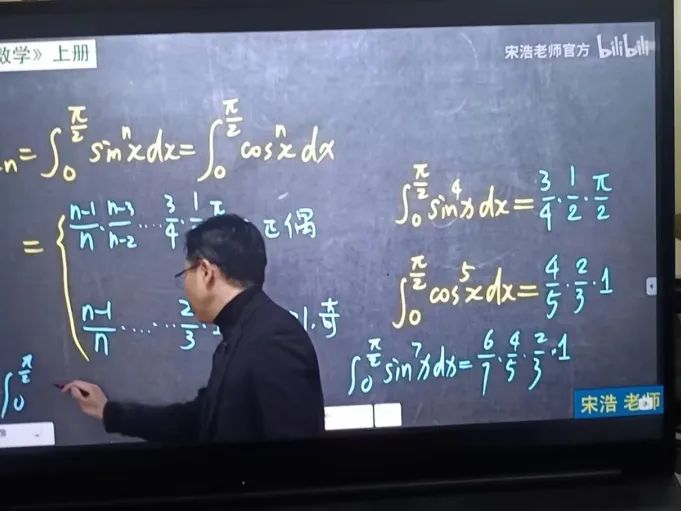 数学》上册
宋浩老师官方 bilibili
n = ∫₀^(π/2) sinⁿx dx = ∫₀^(π/2) cosⁿx dx
= { (n-1)/n · (n-3)/(n-2) ···· 3/4 · 1/2 · π 正偶
(n-1)/n ······ 2/3 · 正奇
∫₀^(π/2) sin⁴x dx = 3/4 · 1/2 · π/2
∫₀^(π/2) cos⁵x dx = 4/5 · 2/3 · 1
∫₀^(π/2) sin⁷x dx = 6/7 · 4/5 · 2/3 · 1
∫₀^(π/2)
宋浩 老师